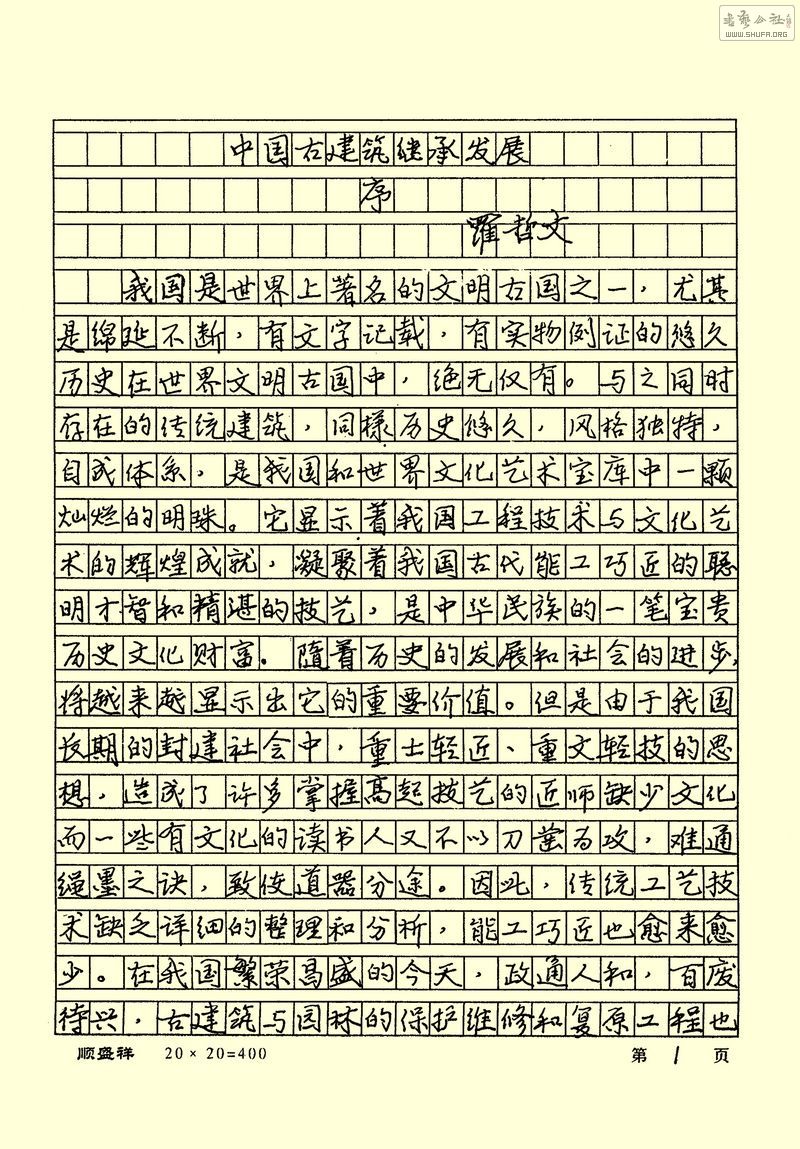 书艺公社
WWW.SHUFA.ORG
中国古建筑继承发展
序
羅哲文
我国是世界上著名的文明古国之一，尤其
是绵延不断，有文字记载，有实物例证的悠久
历史在世界文明古国中，绝无仅有。与之同时
存在的传统建筑，同様历史悠久，风格独特，
自成体系，是我国和世界文化艺术宝库中一颗
灿烂的明珠。它显示着我国工程技术与文化艺
术的辉煌成就，凝聚着我国古代能工巧匠的聪
明才智和精湛的技艺，是中华民族的一笔宝贵
历史文化财富。随着历史的发展和社会的进步，
将越来越显示出它的重要价值。但是由于我国
长期的封建社会中，重士轻匠、重文轻技的思
想，造成了许多掌握高超技艺的匠师缺少文化
而一些有文化的读书人又不以刀 为攻，难通
绳墨之诀，致使道器分途。因此，传统工艺技
术缺乏详细的整理和分析，能工巧匠也愈来愈
少。在我国繁荣昌盛的今天，政通人和，百废
待兴，古建筑与园林的保护维修和复原工程也
顺盛祥 20×20=400 第 1 页